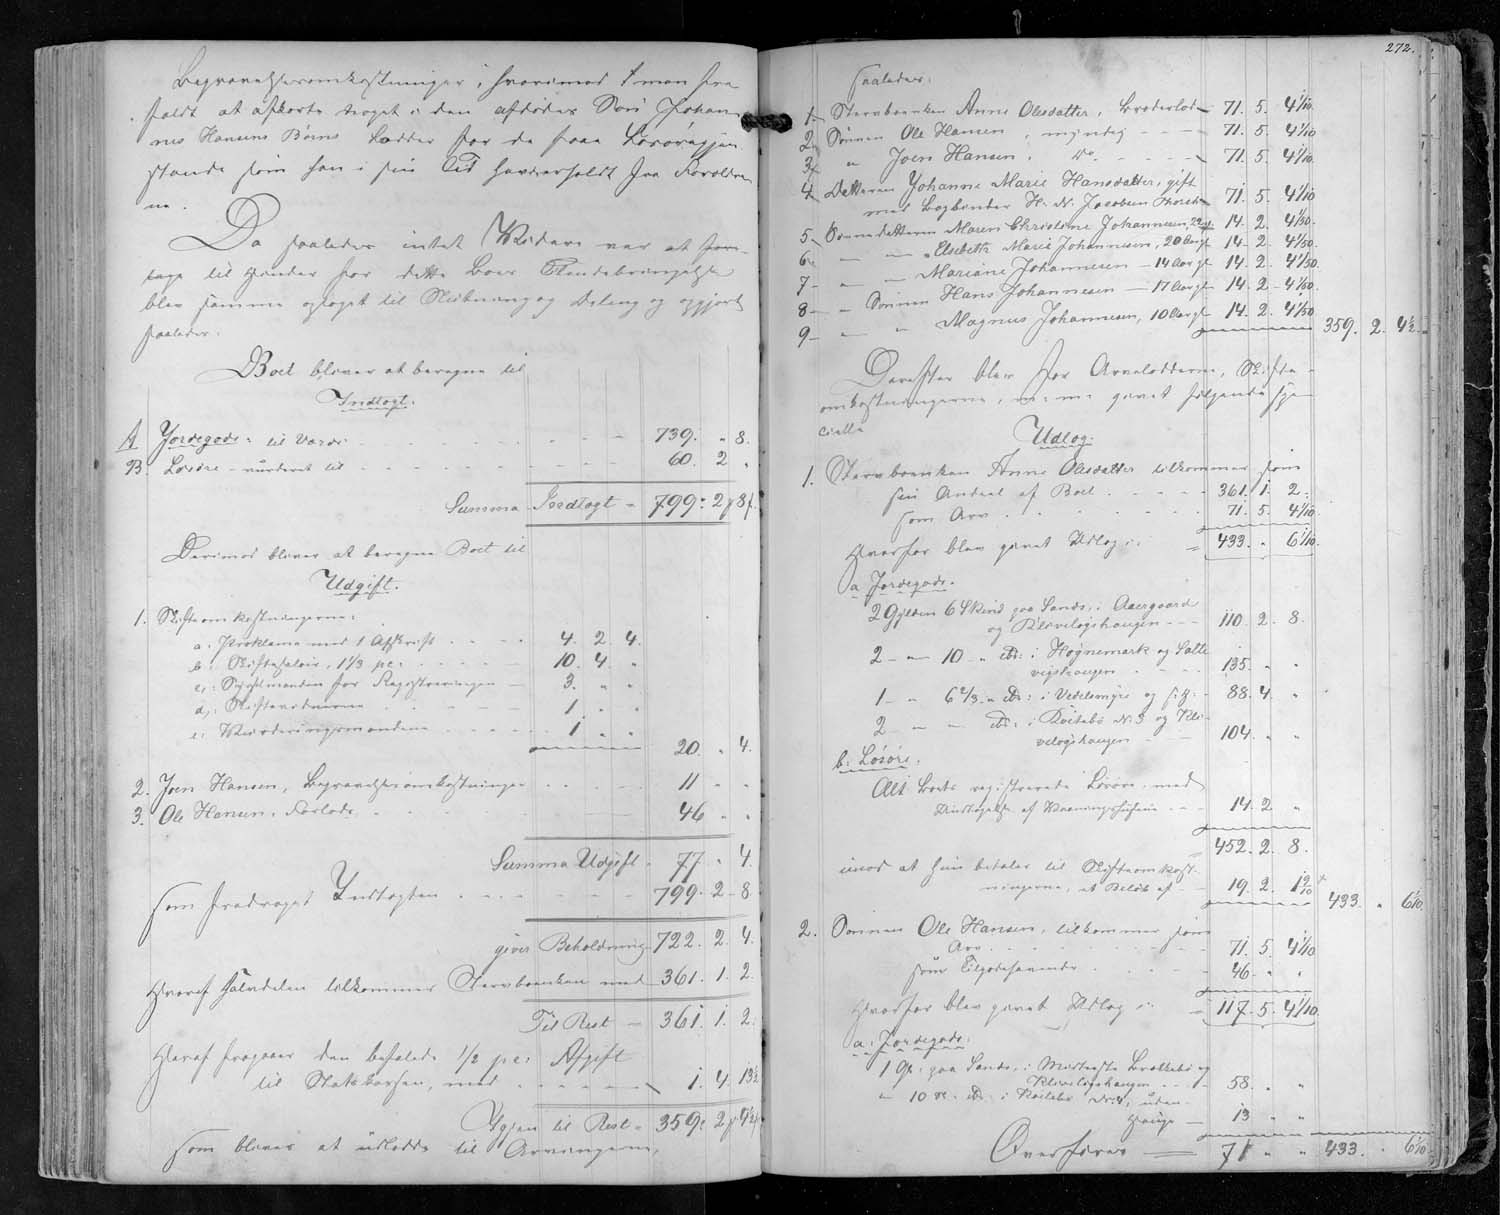 Begravelsesomkostninger, hvorimod man fra
faldt at afkorte noget i den afdødes Søn Johan
nes Hansens Børns Lodder for de fraa Løsøregjen
stande som han i sin Tid havde erholdt fra Forældre
ne.
Da saaledes intet Videre var at fore
tage til Hinder for dette Boes Endebringelse
blev samme optaget til Slutning og Deling og opgjort
saaledes.
Boet bliver at beregne til
Indtægt.
A Jordegods: til Værdi 739. " 8.
B. Løsøre – vurderet til 60. 2 "
Summa Indtægt – 799: 2 f 8 f.
Derimod bliver at beregne Boet til
Udgift.
1. Skifteomkostningerne:
a: Proklama med 1 Afskrift 4. 2. 4.
b: Skiftesalær, 1⅓ pc: 10. 4. "
c: Sysselmanden for Registreringen 3. " "
d: Skiftevidnerne 1. " "
e: Vurderingsmændene 1. " "
20. " 4.
2. Joen Hansen, Begravelsesomkostninger 11 " "
3. Ole Hansen, Forlods 46 " "
Summa Udgift 77 " 4.
som fradraget Indtægten 799. 2 – 8
giver Beholdning 722. 2. 4.
Hvoraf Halvdelen tilkommer Stervboenken med 361. 1. 2.
Til Rest – 361. 1. 2.
Heraf fragaaer den befalede ½ pc: Afgift
til Statskassen, med 1. 4. 13½
Igjen til Rest – 359. 2 f 4½ f
som bliver at udlodde til Arvingerne,
272.
saaledes:
1. Stervboenken Anne Olesdatter, Broderlod 71. 5. 4 1/10
2. Sønnen Ole Hansen, myndig 71. 5. 4 1/10
3. " Joen Hansen, Do 71. 5. 4 1/10.
4. Datteren Johanne Marie Hansdatter, gift
med Bogbinder H. N. Jacobsen Thorsh 71. 5. 4 1/10
5. Sønnedatteren Maren Christine Johannesen, 22 14. 2. 4 1/50.
6. – " – Elsebeth Marie Johannesen, 20 Aar gl 14. 2. 4 1/50.
7 – " – Mariane Johannesen – 14 Aar gl 14. 2. 4 1/50.
8 – " Sønnen Hans Johannesen – 17 Aar gl 14. 2. 4 1/50.
9 – " " Magnus Johannesen, 10 Aar gl 14. 2. 4 1/50 359. 2. 4½.
Derefter blev for Arvelodderne, Skifte
omkostningerne, m: m: gjort følgende spe
cielle
Udlæg:
1. Stervboenken Anne Olesdatter tilkommer som
sin Andeel af Boet 361. 1 2.
som Arv 71. 5. 4 1/10.
Hvorfor blev gjort Udlæg i: 433. " 6 1/10.
a Jordegods.
2 Gylden 6 Skind paa Sands, i Aaergaard
og Klivelogshaugen 110. 2. 8.
2 – " – 10 – " do: i Høgnemark og Salte
vigshaugen 135. " "
1 – " 6⅔ " do: i Vedelsmyre og s: H: 88. 4. "
2 – " – do: i Køitebø N: 3 og Kli
velogshaugen 104. " "
b: Løsøre.
Alt Boets registrerede Løsøre, med
Undtagelse af Vaaningshusene 14. 2 "
452. 2. 8.
imod at hun betaler til Skifteomkost
ningerne, et Beløb af 19. 2. 1 9/10 433. " 6 1/10.
2. Sønnen Ole Hansen, tilkommer som
Arv 71. 5. 4 1/10
som Tilgodehavende 46. " "
Hvorfor blev gjort Udlæg i: 117. 5. 4 1/10.
a: Jordegods:
1 G: paa Sands, i
Klivelogshaugen 58. " "
" 10 Sk. do: i Køitebø N: 3, uden
Hauge 13 " "
Overføres 71 " " 433. " 6 1/10